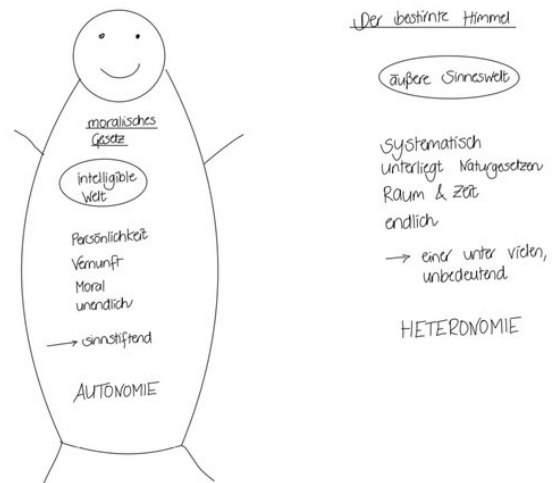 moralisches
Gesetz
intelligible
Welt
Persönlichkeit
Vernunft
Moral
unendlich
→ sinnstiftend
AUTONOMIE
Der bestirnte Himmel
äußere Sinneswelt
systematisch
unterliegt Naturgesetzen
Raum & Zeit
endlich
→ einer unter vielen,
unbedeutend
HETERONOMIE